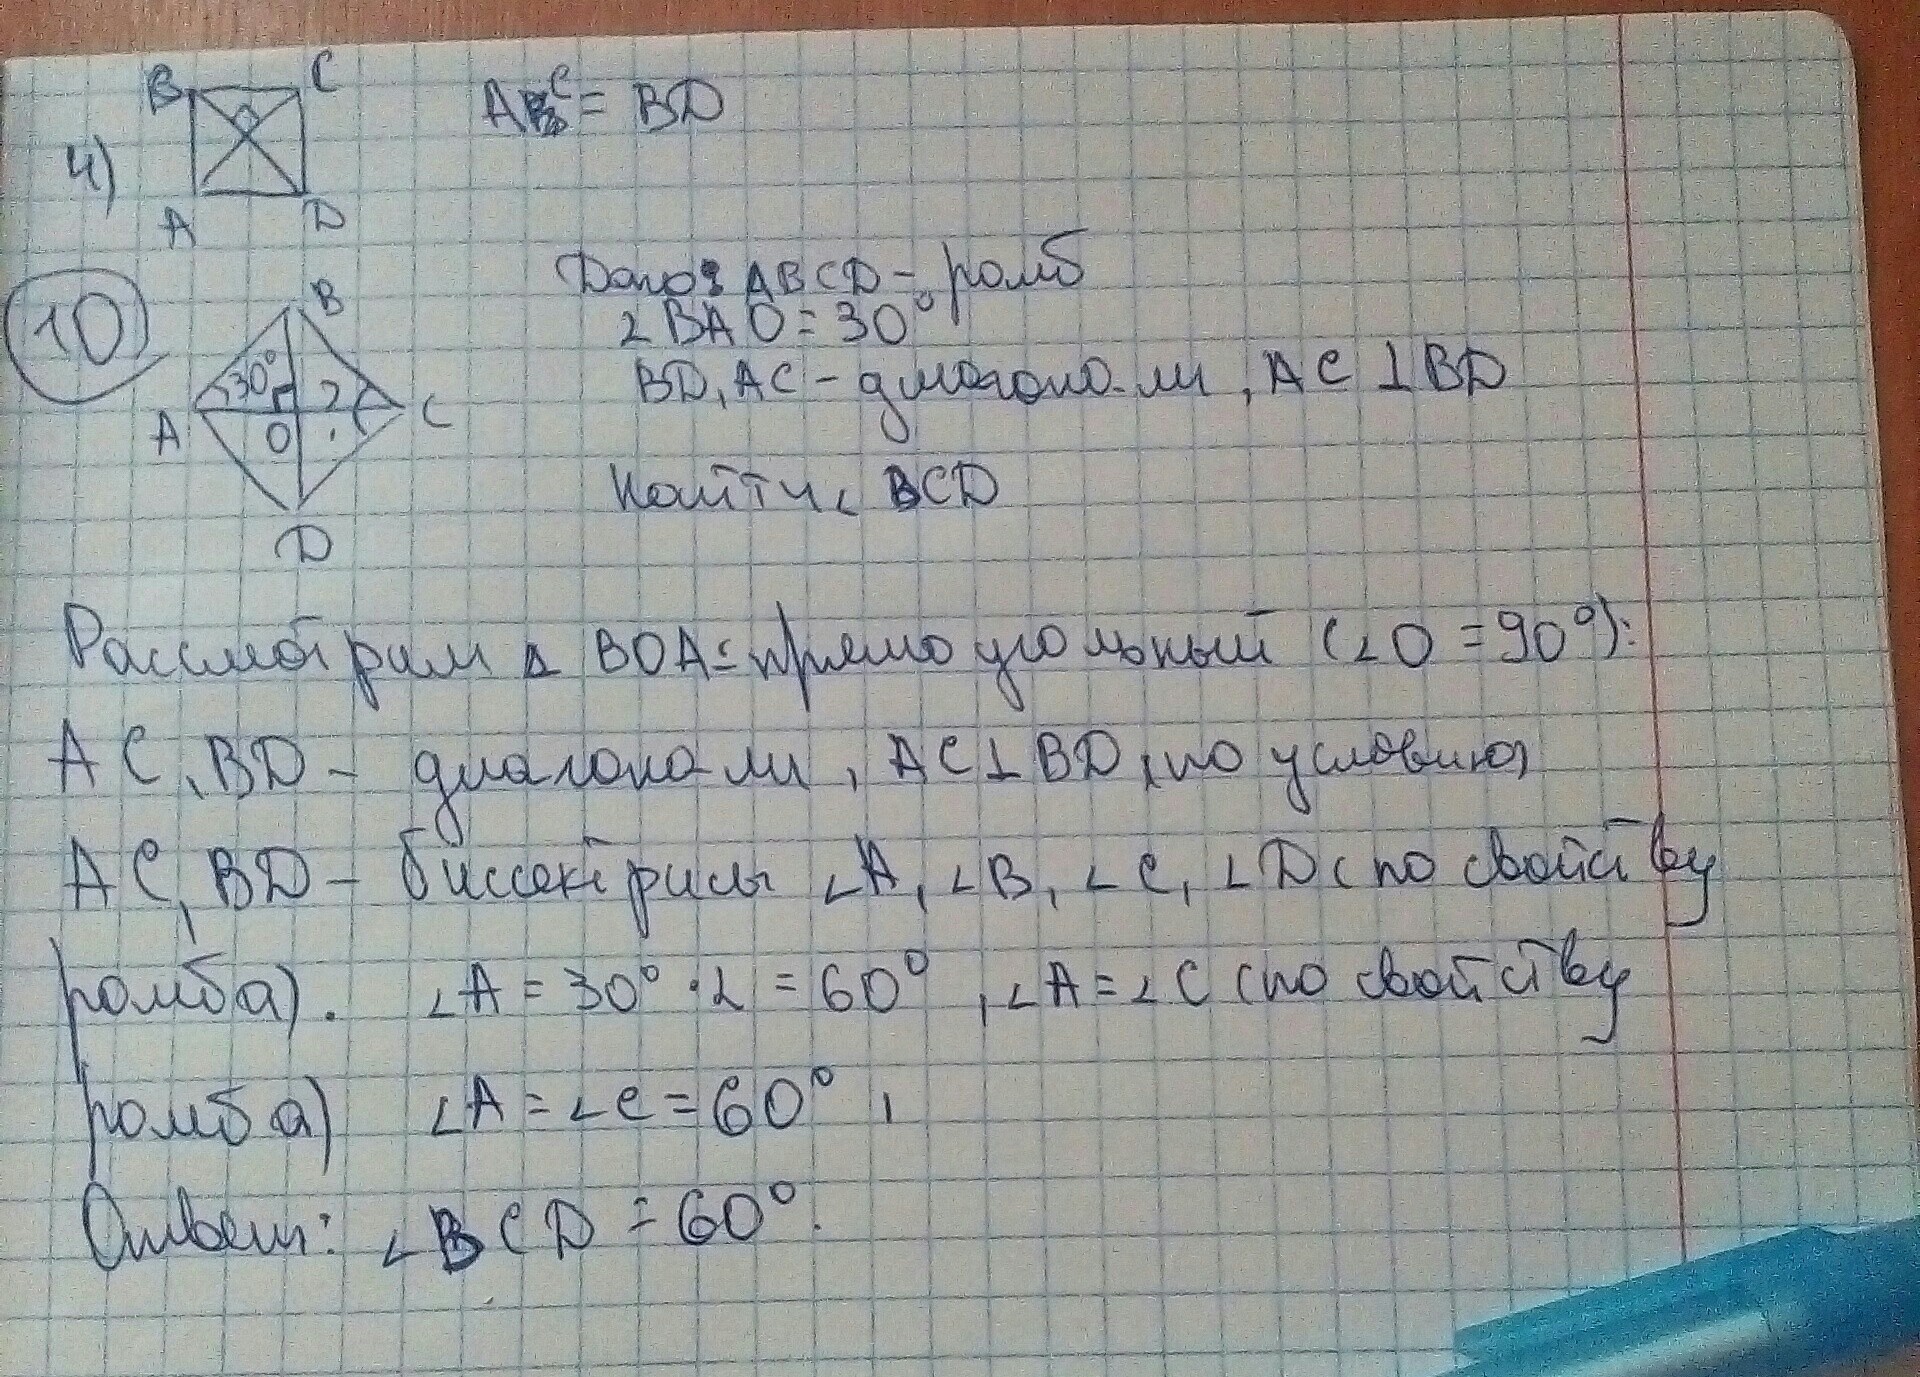 B C
AC = BD
4)
A D
10
B
30° ?
A O C
D
Дано: ABCD - ромб
∠BAO = 30°
BD, AC - диагонали, AC ⊥ BD
Найти ∠ BCD
Рассмотрим △ BOA = прямоугольный (∠O = 90°):
AC, BD - диагонали, AC ⊥ BD, по условию,
AC, BD - биссектрисы ∠A, ∠B, ∠C, ∠D (по свойству
ромба). ∠A = 30° · 2 = 60°, ∠A = ∠C (по свойству
ромба) ∠A = ∠C = 60°,
Ответ: ∠BCD = 60°.